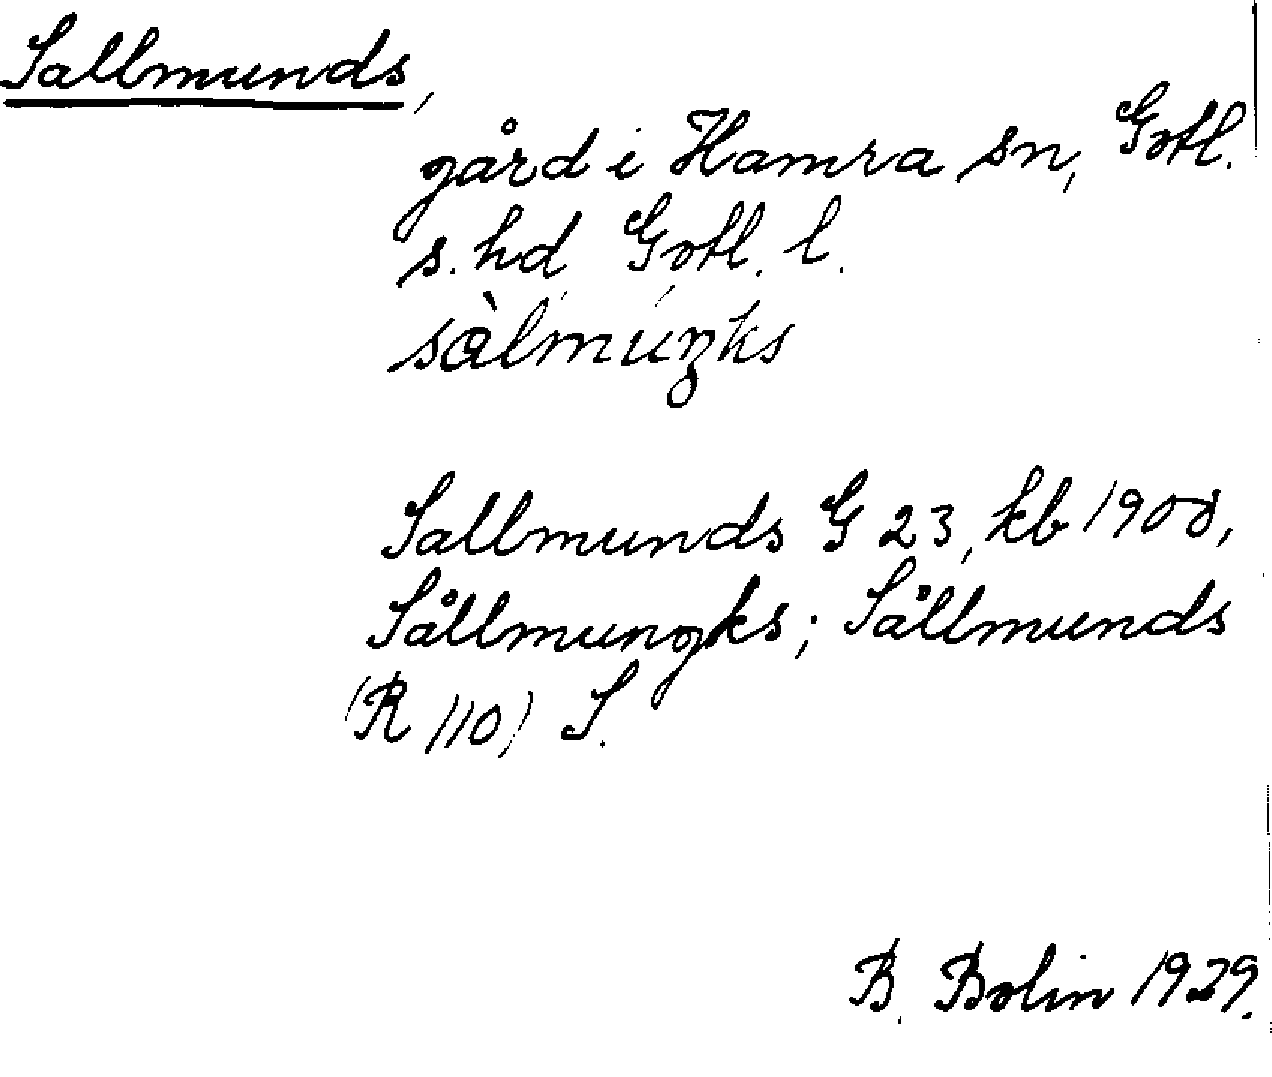 Sallmunds,
gård i Hamra sn, Gotl.
s. hd, Gotl. l.
sàlmúŋks
Sallmunds G 23, kb 1900,
Sållmungks; Sållmunds
(R 110) S.
B. Bolin 1929.